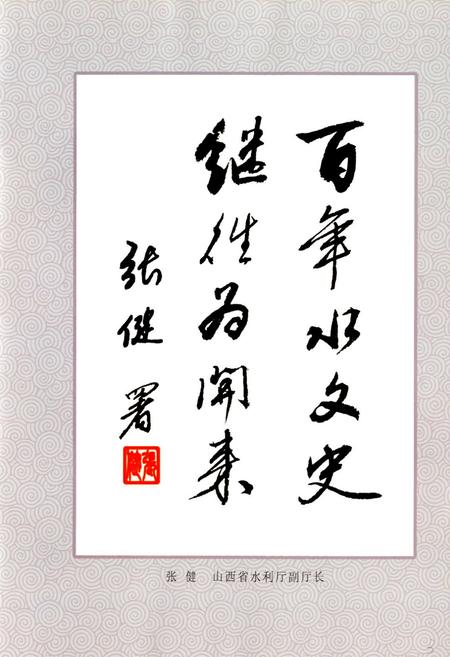 百年水文史
继往为开来
张健 署
张健
张健 山西省水利厅副厅长